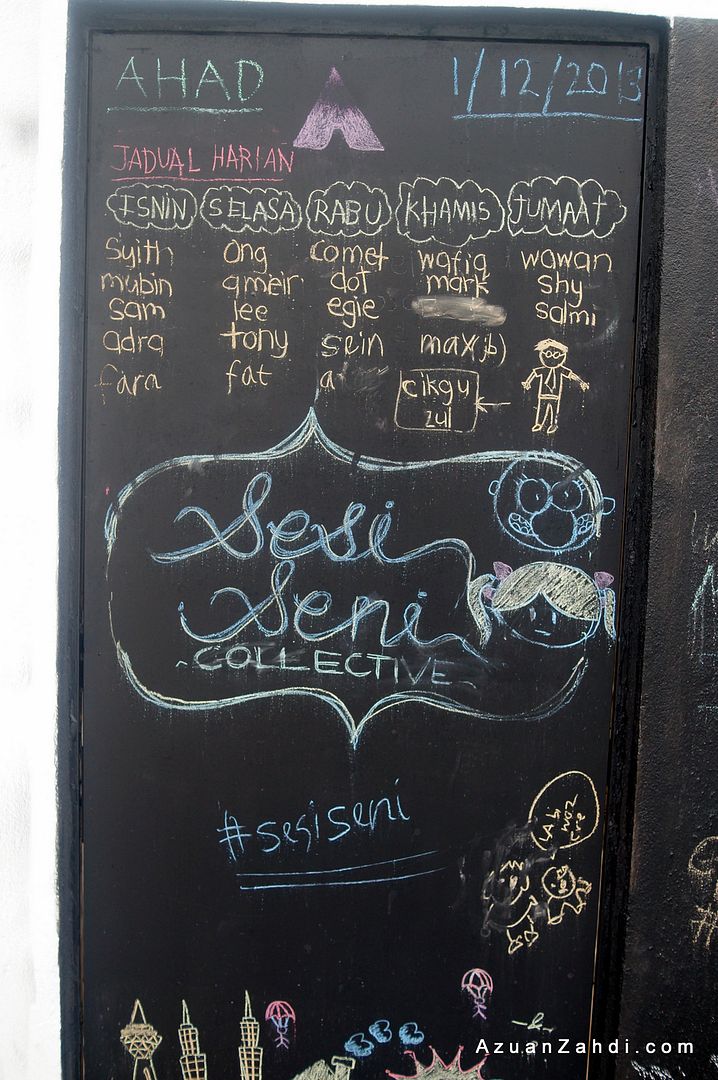 AHAD 1/12/2013
JADUAL HARIAN
ISNIN SELASA RABU KHAMIS JUMAAT
Syith ong comet wafiq wawan
mubin qmeir dot mark shy
sam lee egie salmi
adra tony sein max jb)
fara fat cikgu
zul
Sesi
Seni
COLLECTIVE
#sesiseni
AzuanZahdi.com